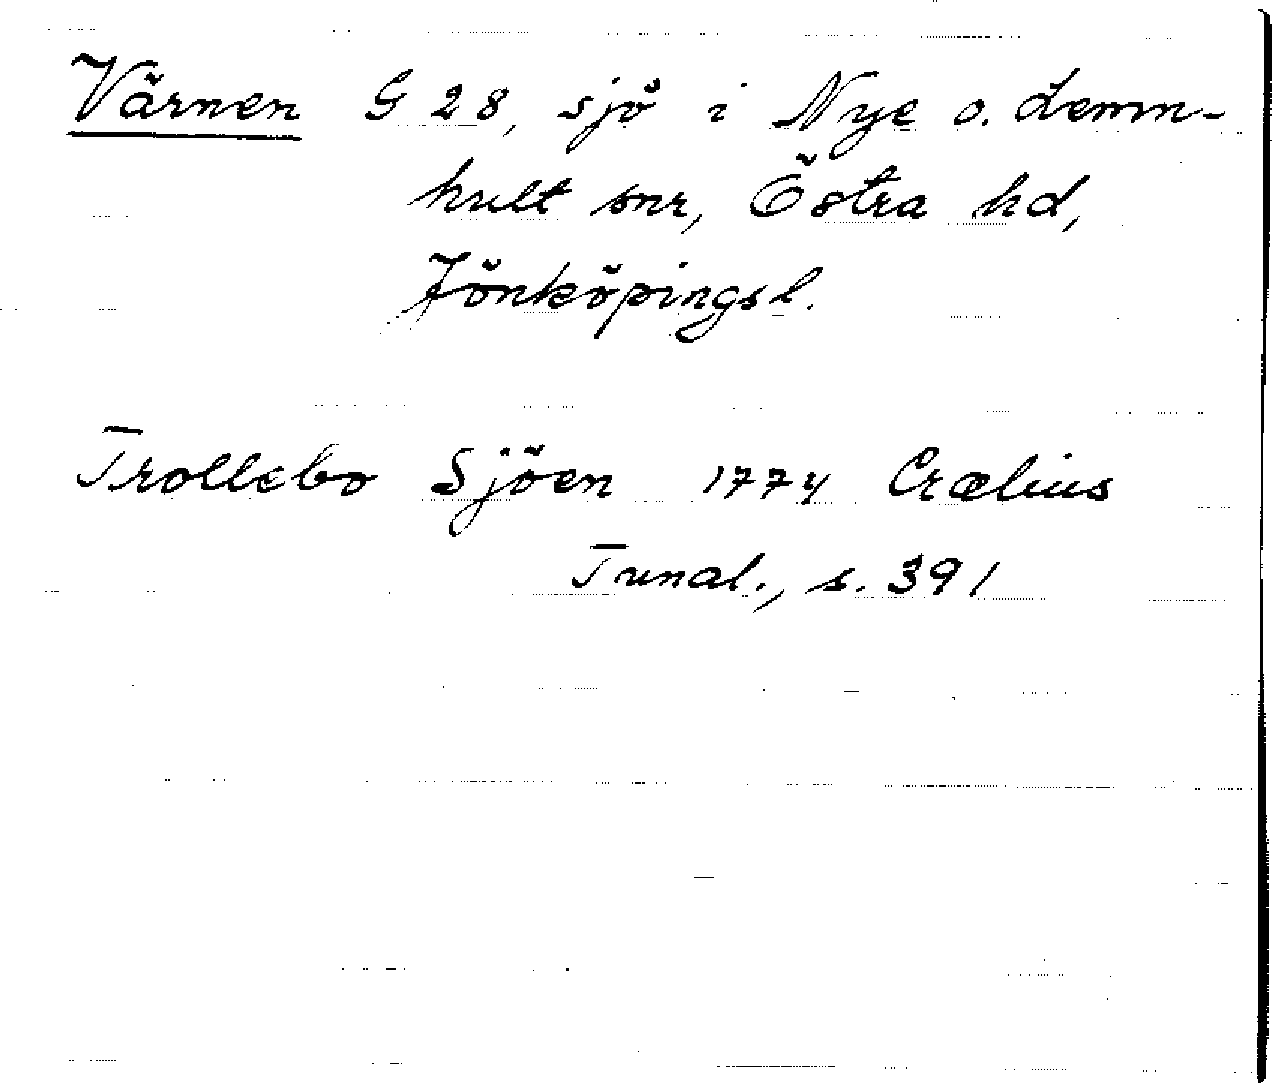 Värnen G 28, sjö i Nye o. Lemn-
hult snr, Östra hd,
Jönköpingsl.
Trollebo Sjöen 1774 Crælius
Tunal., s. 391